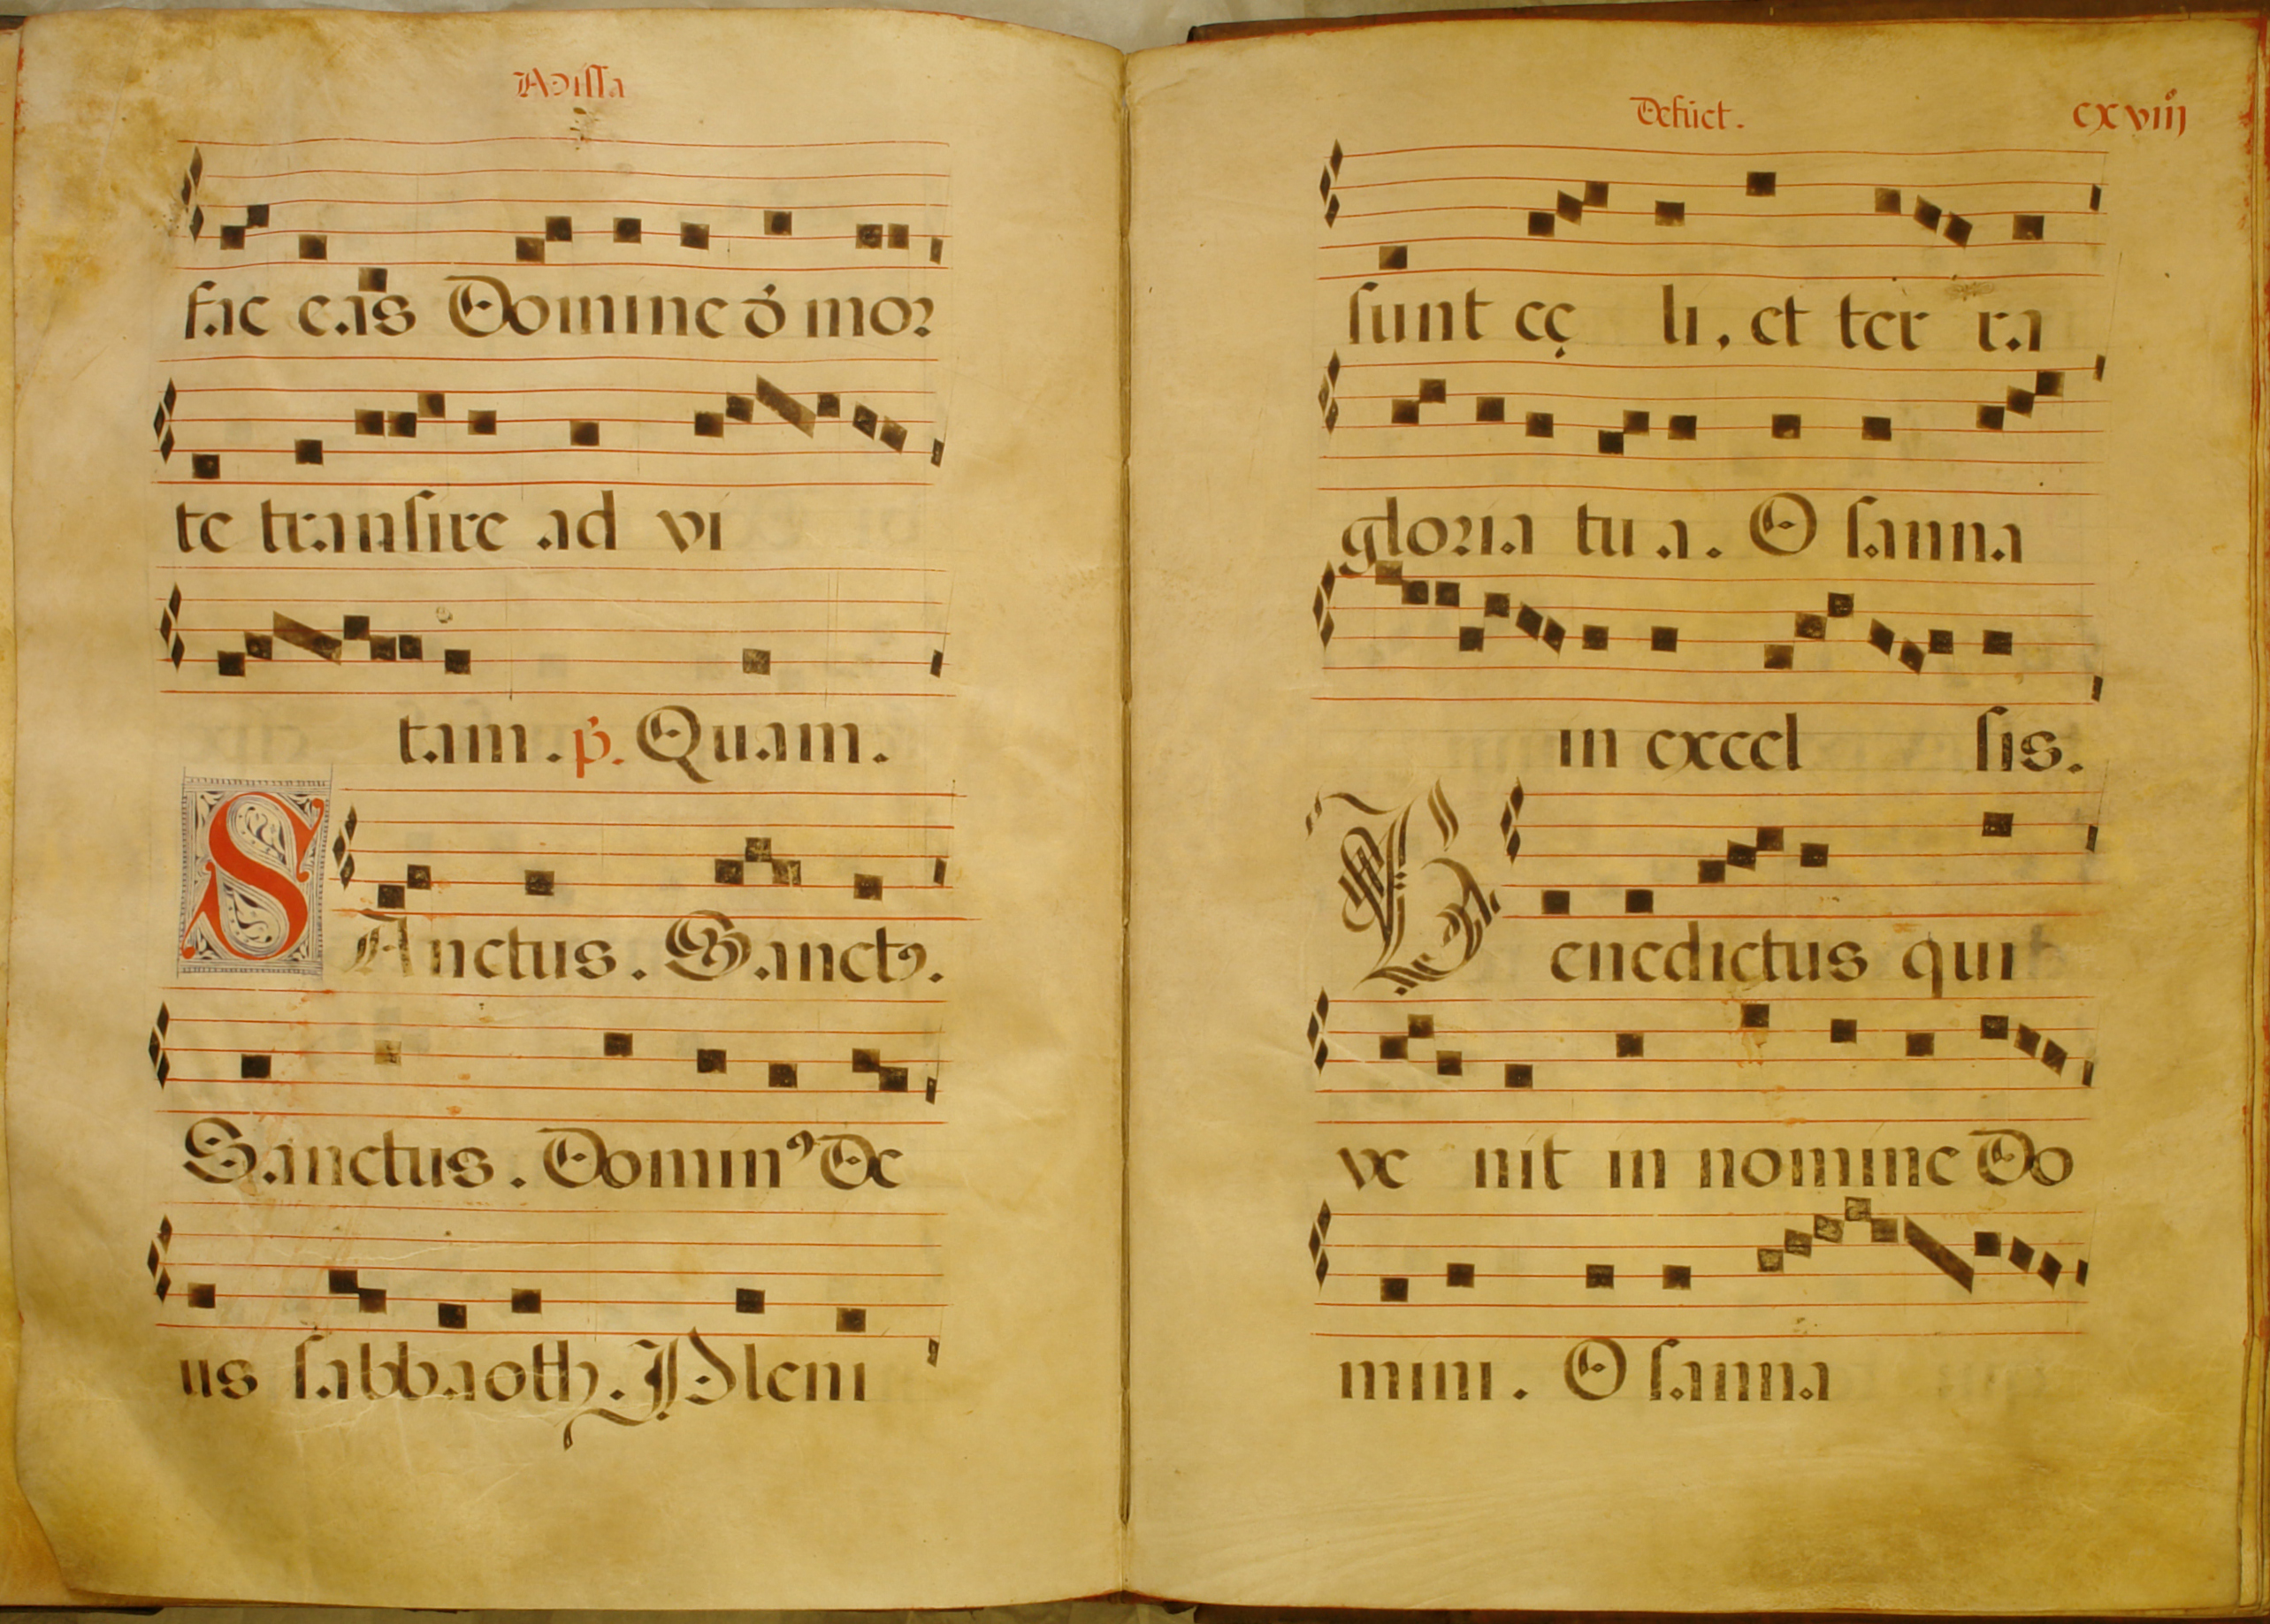 Missa
fac eas Domine đ mor
te transire ad vi
tam. p̃. Quam.
SAnctus. Sanctꝯ.
Sanctus. Dominꝯ De
us sabbaoth. Pleni
Defūct. cxviiij
sunt cę li, et ter ra
gloria tu a. O sanna
in excel sis.
Benedictus qui
ve nit in nomine Do
mini. O sanna